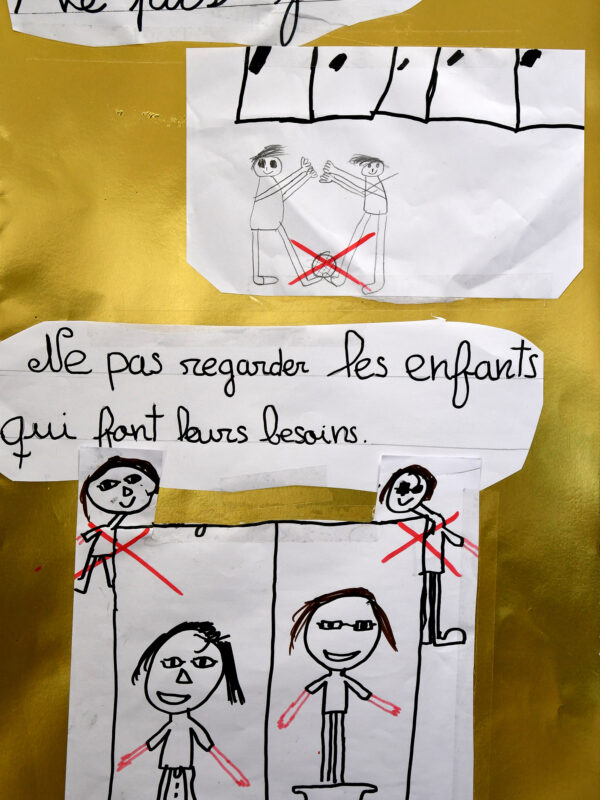 Ne pas
Ne pas regarder les enfants
qui font leurs besoins.